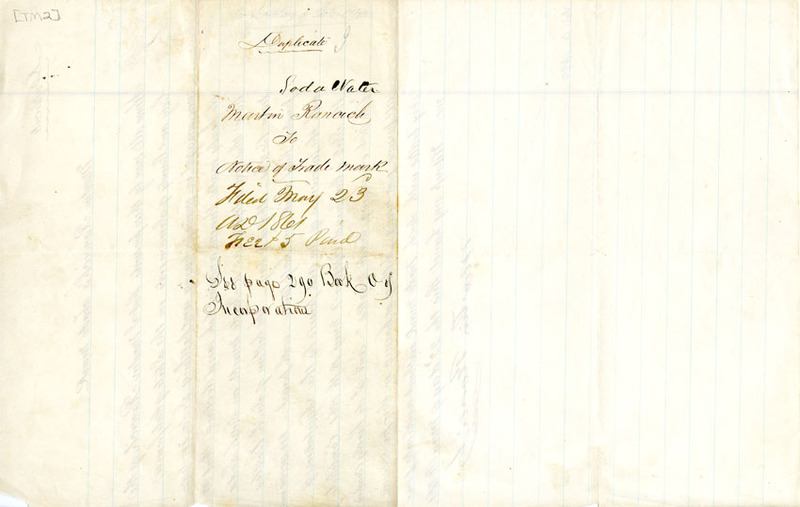 [TM2]
Duplicate
Soda Water
Martin
To
Notice of Trade Mark
Filed May 23
AD 1861
Fees $5 Paid
See page 290 Book O of
Incorporations